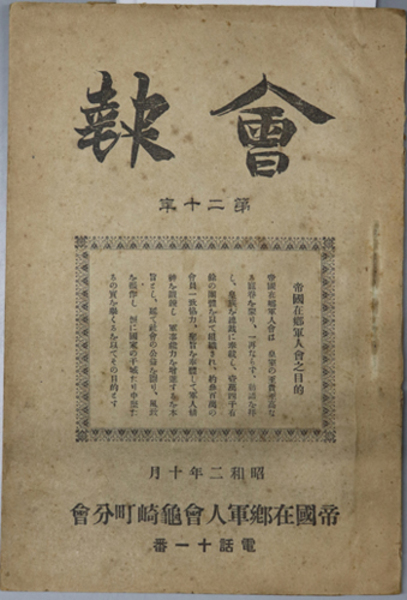 會報
第二十年
帝國在郷軍人會之目的
帝國在郷軍人會は 皇室の至貴至高な
る眷を蒙り、一再ならず、勅語を拜
し、皇族を總裁に奉戴し、壹萬四千有
餘の團體を以て組織され、約參百萬の
會員一致協力、聖旨を奉體して軍人精
神を鍛錬し 軍事能力を增進するを本
旨とし、延て社會の公益を圖り、風教
を振作し 以て國家の干城たり中堅た
るの實を擧くるを以てその目的とす
昭和二年十月
帝國在鄉軍人會龜崎町分會
電話十一番